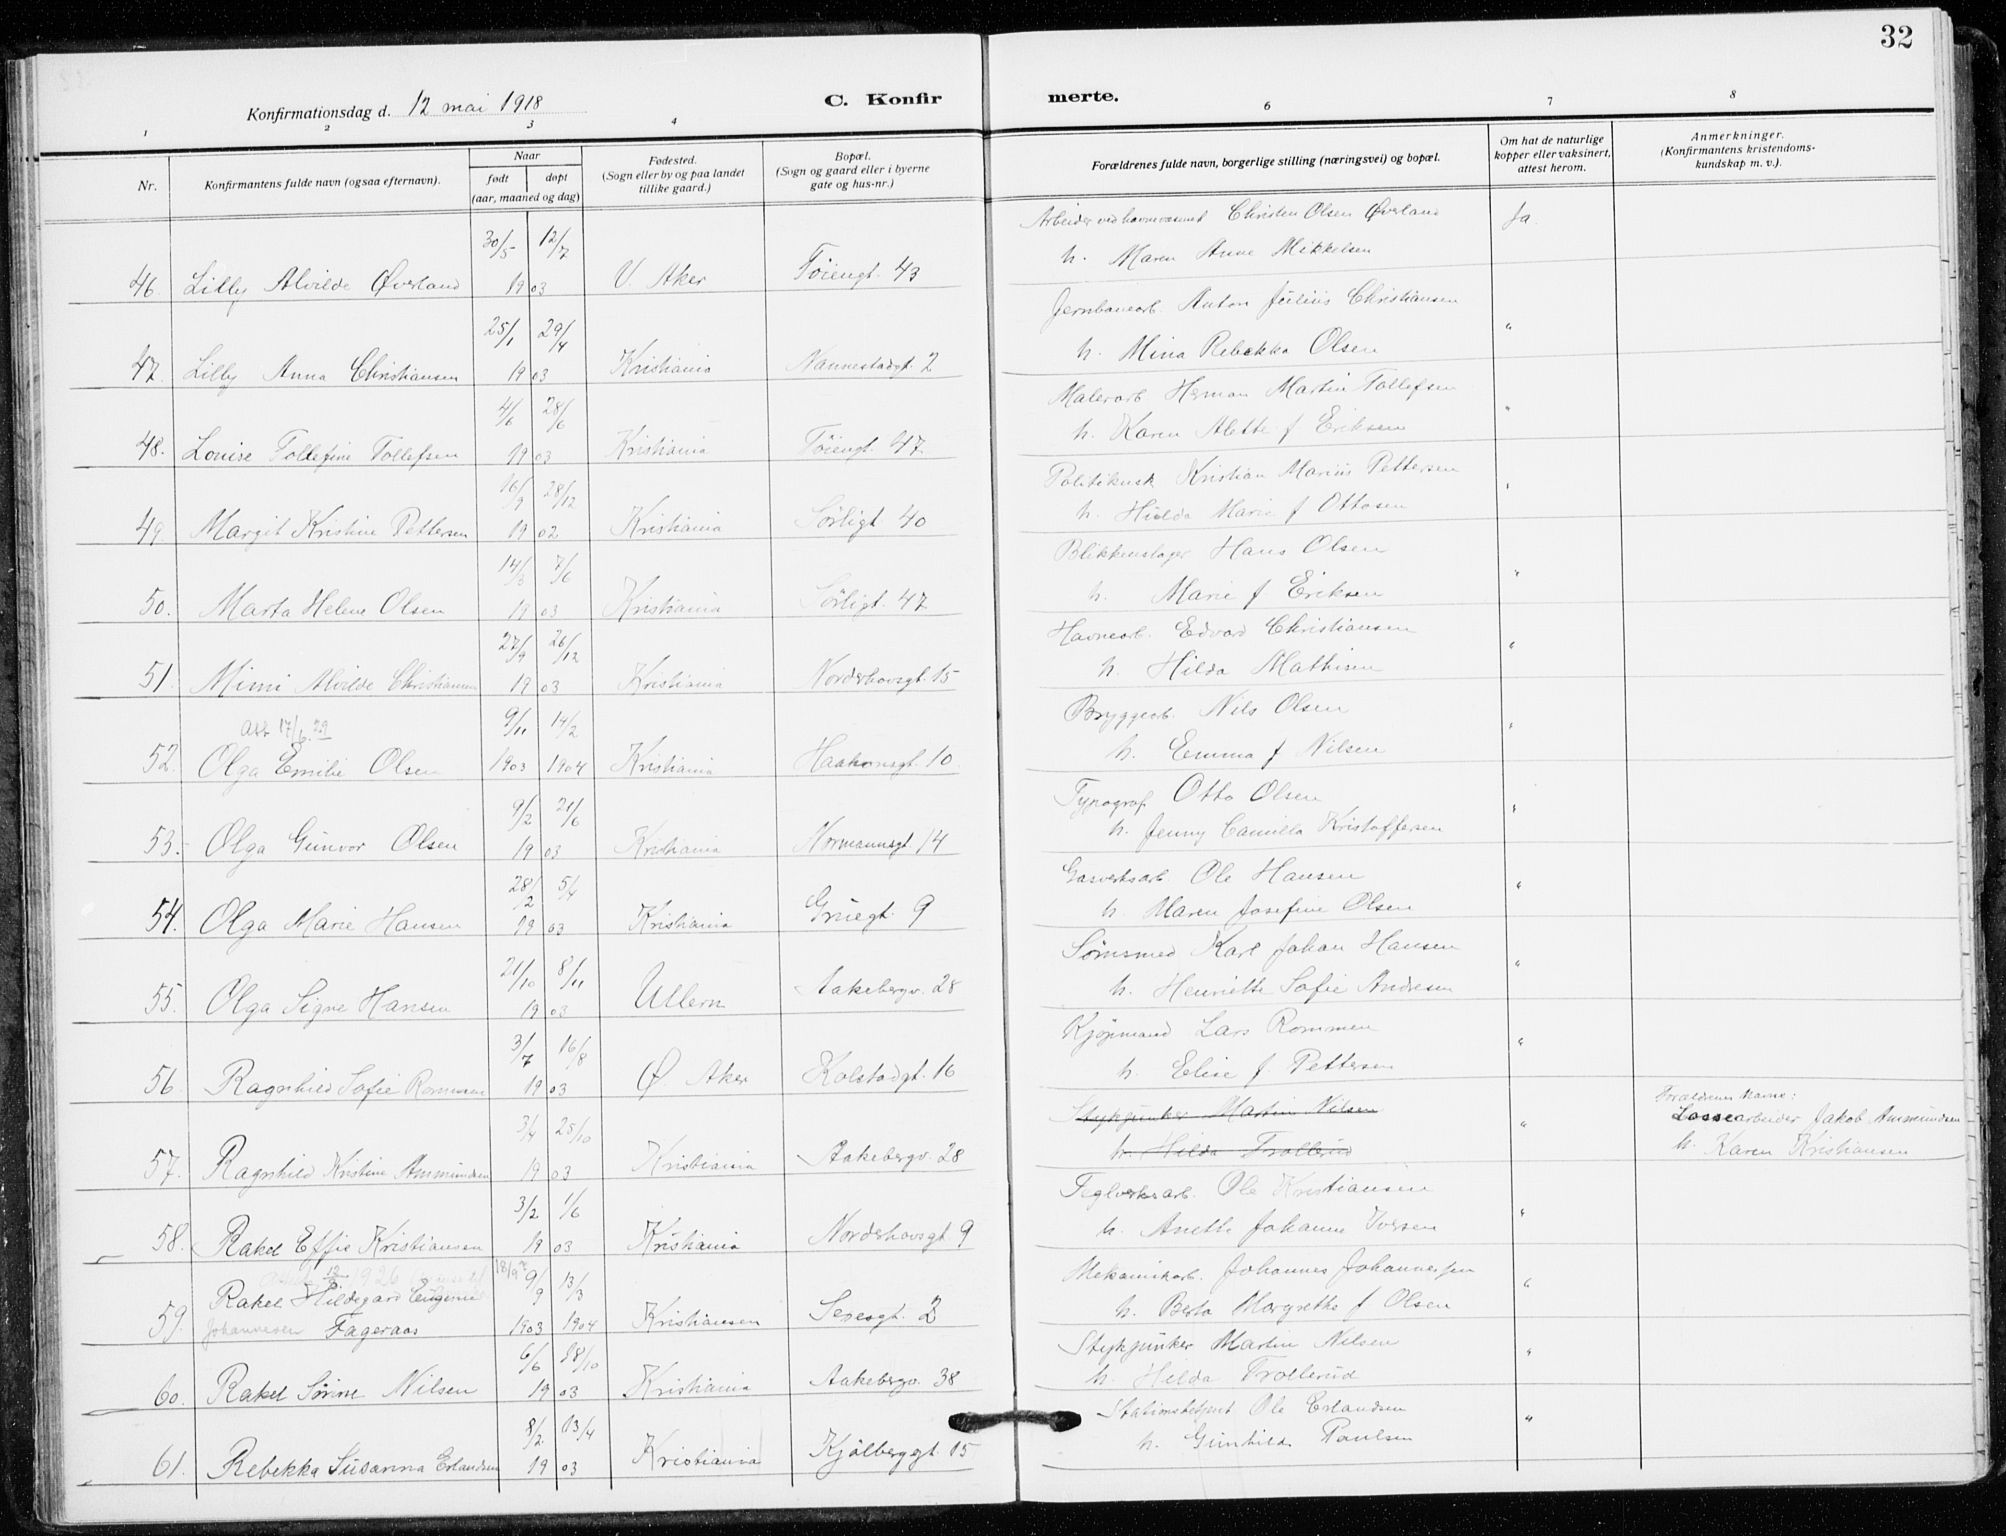 32
Konfirmationsdag d. 12 mai 1918
C. Konfirmerte.
1 2 3 4 6 7 8
Nr.
Konfirmantens fulde navn (ogsaa efternavn).
Naar
født
døpt
(aar, maaned og dag)
Fødested.
(Sogn eller by og paa landet
tillike gaard.)
Bopæl.
(Sogn og gaard eller i byerne
gate og hus-nr.)
Forældrenes fulde navn, borgerlige stilling (næringsvei) og bopæl.
Om hat de naturlige
kopper eller vaksinert,
attest herom.
Anmerkninger.
(Konfirmantens kristendoms-
kundskap m. v.).
30/5 12/7 Arbeider ved havnevæsenet Christen Olsen Øverland Ja.
46. Lilly Alvilde Øverland 19 03 V. Aker Tøiengt. 43 h. Maren Anne Mikkelsen
25/1 29/4 Jernbanearb. Anton Julius Christiansen "
47. Lilly Anna Christiansen 19 03 Kristiania Nannestadgt. 2 h. Mina Rebekka Olsen
4/6 28/6 Malerarb. Herman Martin Tollefsen "
48. Louise Tollefine Tollefsen 19 03 Kristiania Tøiengt. 47 h. Karen Alette f Eriksen
16/9 28/12 Politikusk Kristian Marius Pettersen "
49. Margit Kristine Pettersen 19 02 Kristiania Sørligt. 40 h. Hulda Marie f Ottosen
14/3 7/6 Blikkenslager Hans Olsen "
50. Marta Helene Olsen 19 03 Kristiania Sørligt. 47 h. Marie f Eriksen
27/9 26/12 Havnearb. Edvard Christiansen "
51. Mimi Alvilde Christiansen 19 03 Kristiania Norderhovsgt. 15 h. Hilda Mathisen
Att 17/6 29 9/11 14/2 Bryggearb. Nils Olsen "
52. Olga Emilie Olsen 1903 1904 Kristiania Haakonsgt. 10. h. Emma f Nilsen
9/2 21/6 Typograf Otto Olsen "
53. Olga Gunvor Olsen 19 03 Kristiania Normannsgt. 14 h. Jenny Camilla Kristoffersen
28/2 5/4 Gasverksarb. Ole Hansen "
54. Olga Marie Hansen 19 03 Kristiania Gruegt. 9 h. Maren Josefine Olsen
21/10 8/11 Sømsmed Karl Johan Hansen "
55. Olga Signe Hansen 19 03 Ullern Aakebergv. 28 h. Henriette Sofie Andresen
3/7 16/8 Kjøpmand Lars Rommen "
56. Ragnhild Sofie Rommen 19 03 Ø. Aker Kolstadgt. 16 h. Elise f Pettersen
3/4 25/10 Stykjunker Martin Nilsen " Forældrenes navne:
Lossearbeider Jakob Ammundsen
57. Ragnhild Kristine Ammundsen 19 03 Kristiania Aakebergv. 28 h. Hilda Trollerud h. Karen Kristiansen
3/2 1/6 Teglverksarb. Ole Kristiansen "
58. Rakel Effie Kristiansen 19 03 Kristiania Norderhovsgt 9 h. Anette Johanne Iversen
1926 18/9 9/9 13/3 Mekanikarb. Johannes Johannessen "
Rakel Hildegard Eugenie
59. Johannesen Fageraas 1903 1904 Kristiansen Seresgt. 2 h. Berta Margrethe f Olsen
6/6 18/10 Stykjunker Martin Nilsen "
60. Rakel Sørine Nilsen 19 03 Kristiania Aakebergv. 38 h. Hilda Trollerud
8/2 13/4 Stationsbetjent Ole Erlandsen "
61. Rebekka Susanna Erlandsen 19 03 Kristiania Kjølberggt. 15 h. Gunhild Paulsen